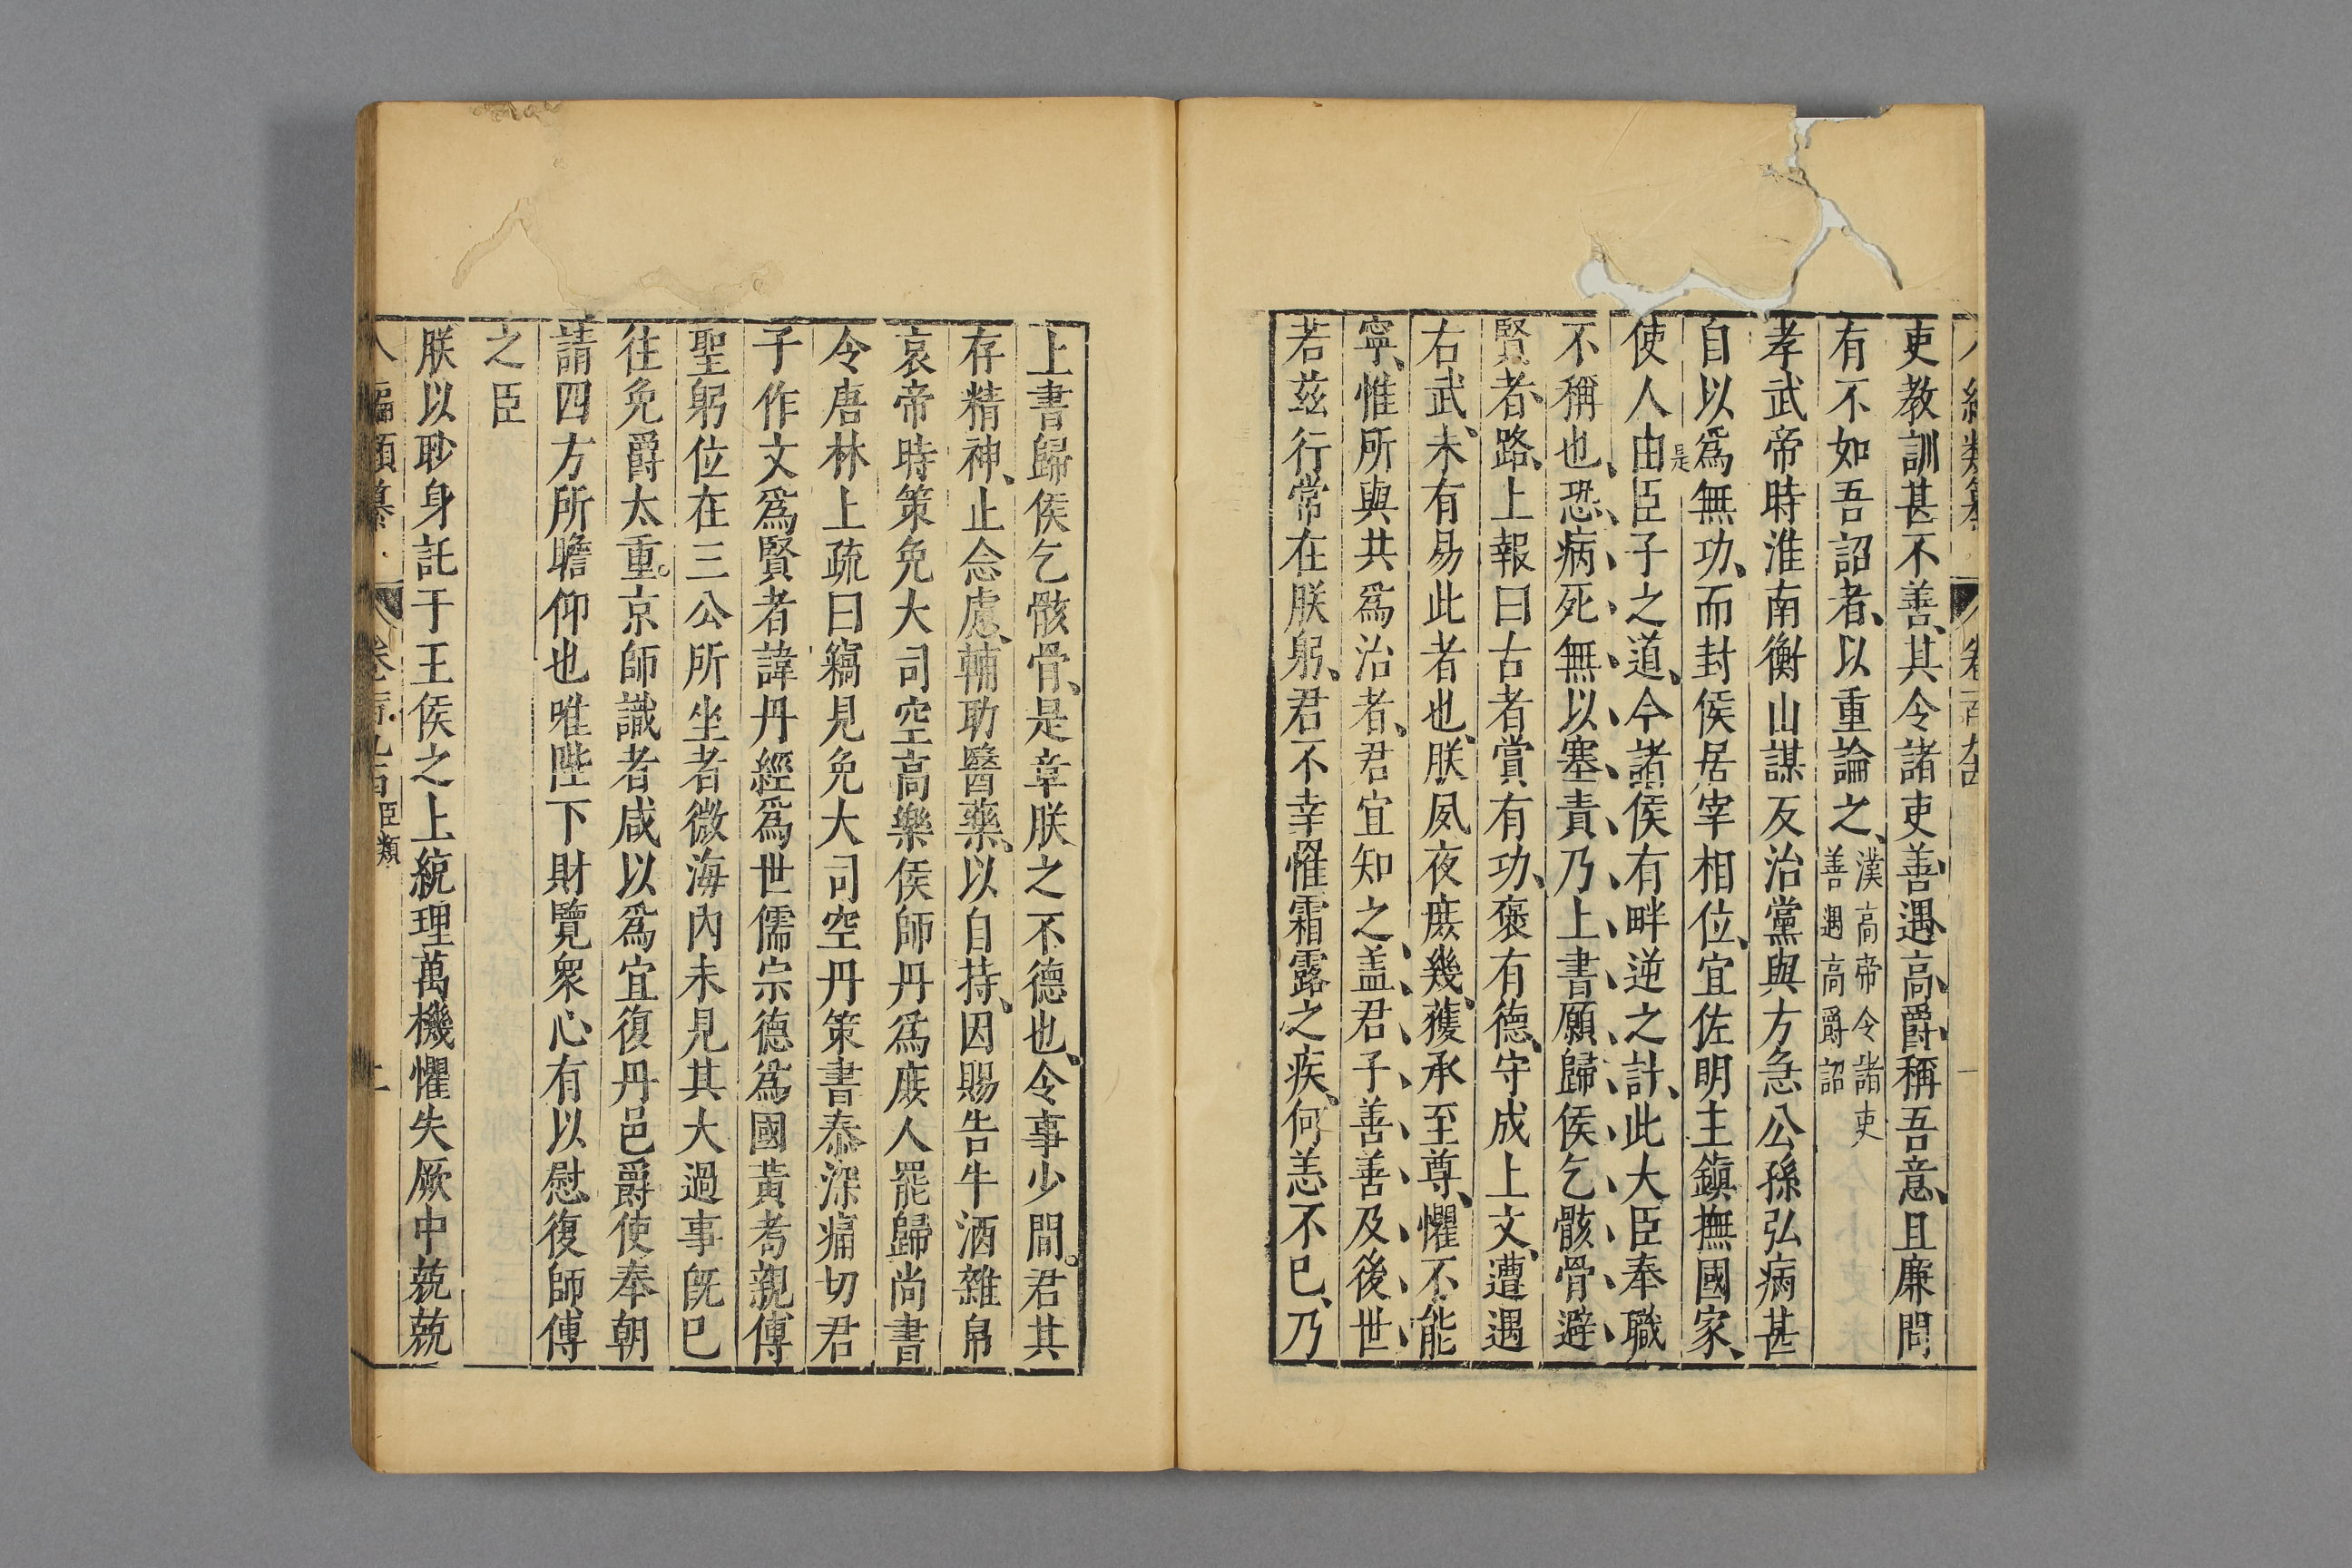 吏教訓甚不善其令諸吏善遇高爵稱吾意且廉問
有不如吾詔者以重論之漢高帝令諸吏善遇高爵詔
孝武帝時淮南衡山謀反治黨與方急公孫弘病甚
自以爲無功而封侯居宰相位宜佐明主鎮撫國家
使人由是臣子之道今諸侯有畔逆之計此大臣奉職
不稱也恐病死無以塞責乃上書願歸侯乞骸骨避
賢者路上報曰古者賞有功褒有德守成上文遭遇
右武未有易此者也朕夙夜庶幾獲承至尊懼不能
寧惟所與共爲治者君宜知之盖君子善善及後世
若茲行常在朕躬君不幸罹霜露之疾何恙不已乃
上書歸侯乞骸骨是章朕之不德也令事少間。君其
存精神止念慮輔助醫藥以自持因賜告牛酒雜帛
哀帝時策免大司空高樂侯師丹爲庶人罷歸尚書
令唐林上疏曰竊見免大司空丹策書泰深痛切君
子作文爲賢者諱丹經爲世儒宗德爲國黃耉親傅
聖躬位在三公所坐者微海內未見其大過事既已
往免爵太重。京師識者咸以爲宜復丹邑爵使奉朝
請四方所瞻仰也唯陛下財覽衆心有以慰復師傅
之臣
朕以眇身託于王侯之上統理萬機懼失厥中兢兢
編類纂
臣類
二